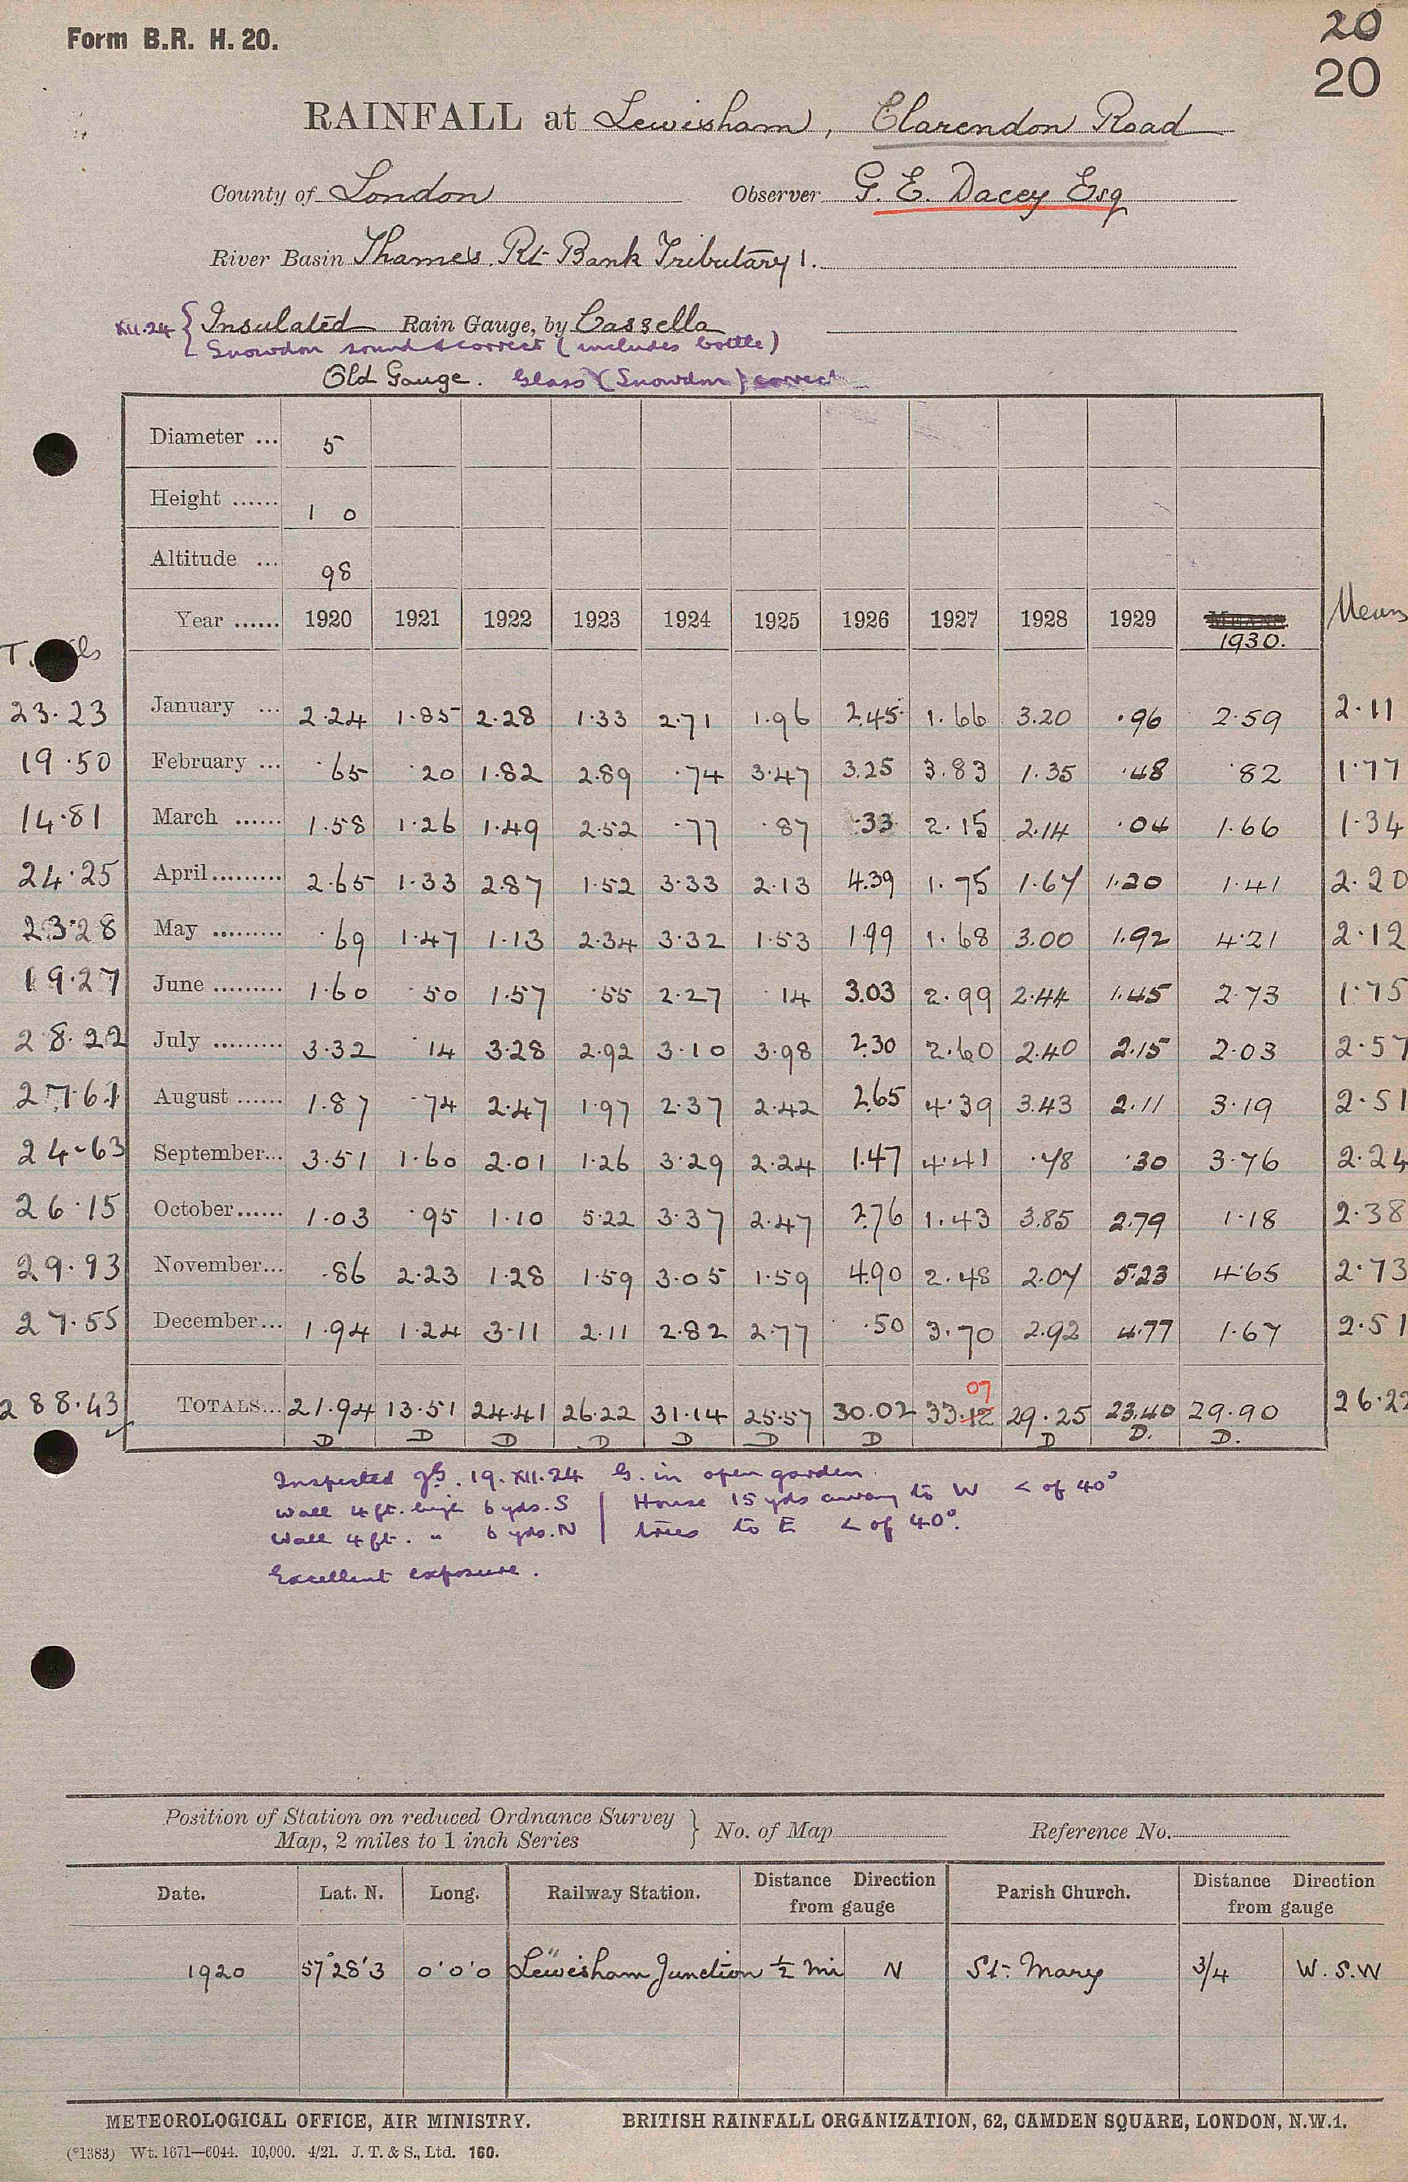 Form B.R. H. 20.
20
20
RAINFALL at Lewisham, Clarendon Road
County of London Observer G. E. Dacey Esq
River Basin Thames Rt Bank Tributary 1.
XII.24 { Insulated Rain Gauge, by Cassella
Snowdon sound & correct (includes bottle)
Old Gauge. Glass (Snowdon) correct
Diameter ... 5
Height ...... 1 0
Altitude ... 98
Year ...... 1920 1921 1922 1923 1924 1925 1926 1927 1928 1929 1930. Means
23.23 January ... 2.24 1.85 2.28 1.33 2.71 1.96 2.45 1.66 3.20 .96 2.59 2.11
19.50 February ... .65 .20 1.82 2.89 .74 3.47 3.25 3.83 1.35 .48 .82 1.77
14.81 March ...... 1.58 1.26 1.49 2.52 .77 .87 .33 2.15 2.14 .04 1.66 1.34
24.25 April ......... 2.65 1.33 2.87 1.52 3.33 2.13 4.39 1.75 1.67 1.20 1.41 2.20
23.28 May ......... .69 1.47 1.13 2.34 3.32 1.53 1.99 1.68 3.00 1.92 4.21 2.12
19.27 June ......... 1.60 .50 1.57 .55 2.27 .14 3.03 2.99 2.44 1.45 2.73 1.75
28.22 July ......... 3.32 .14 3.28 2.92 3.10 3.98 2.30 2.60 2.40 2.15 2.03 2.57
27.61 August ...... 1.87 .74 2.47 1.97 2.37 2.42 2.65 4.39 3.43 2.11 3.19 2.51
24.63 September... 3.51 1.60 2.01 1.26 3.29 2.24 1.47 4.41 .78 .30 3.76 2.24
26.15 October...... 1.03 .95 1.10 5.22 3.37 2.47 2.76 1.43 3.85 2.79 1.18 2.38
29.93 November... .86 2.23 1.28 1.59 3.05 1.59 4.90 2.48 2.07 5.23 4.65 2.73
27.55 December... 1.94 1.24 3.11 2.11 2.82 2.77 .50 3.70 2.92 4.77 1.67 2.51
07
288.43 TOTALS... 21.94 13.51 24.41 26.22 31.14 25.57 30.02 33.12 29.25 23.40 29.90 26.22
D D D D D D D D D. D.
Inspected 19.XII.24 G. in open garden.
Wall 4 ft. high 6 yds. S | House 15 yds away to W < of 40°
Wall 4 ft. " 6 yds. N | trees to E < of 40°.
Excellent exposure.
Position of Station on reduced Ordnance Survey
Map, 2 miles to 1 inch Series } No. of Map Reference No.
Date. Lat. N. Long. Railway Station. Distance Direction from gauge Parish Church. Distance Direction from gauge
1920 57°28'3" 0'0'0 Lewisham Junction ½ mi N St. Mary 3/4 W.S.W
METEOROLOGICAL OFFICE, AIR MINISTRY. BRITISH RAINFALL ORGANIZATION, 62, CAMDEN SQUARE, LONDON, N.W.1.
(*1383) Wt. 1671—6044. 10,000. 4/21. J. T. & S., Ltd. 160.